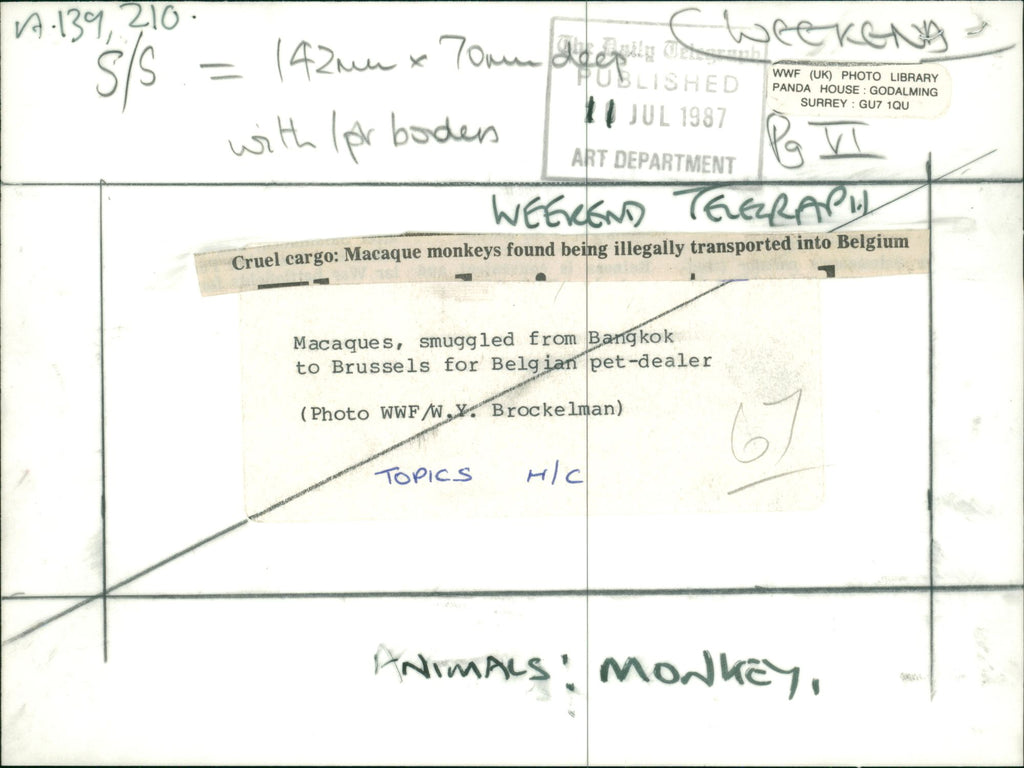 A.139, 210.
(WEEKEND)
S/S = 142mm x 70mm deep
with 1pt borders
The Daily Telegraph
PUBLISHED
11 JUL 1987
ART DEPARTMENT
WWF (UK) PHOTO LIBRARY
PANDA HOUSE : GODALMING
SURREY : GU7 1QU
Pg VI
WEEKEND TELEGRAPH
Cruel cargo: Macaque monkeys found being illegally transported into Belgium
Macaques, smuggled from Bangkok
to Brussels for Belgian pet-dealer
(Photo WWF/W.Y. Brockelman)
67
TOPICS H/C
ANIMALS: MONKEY.